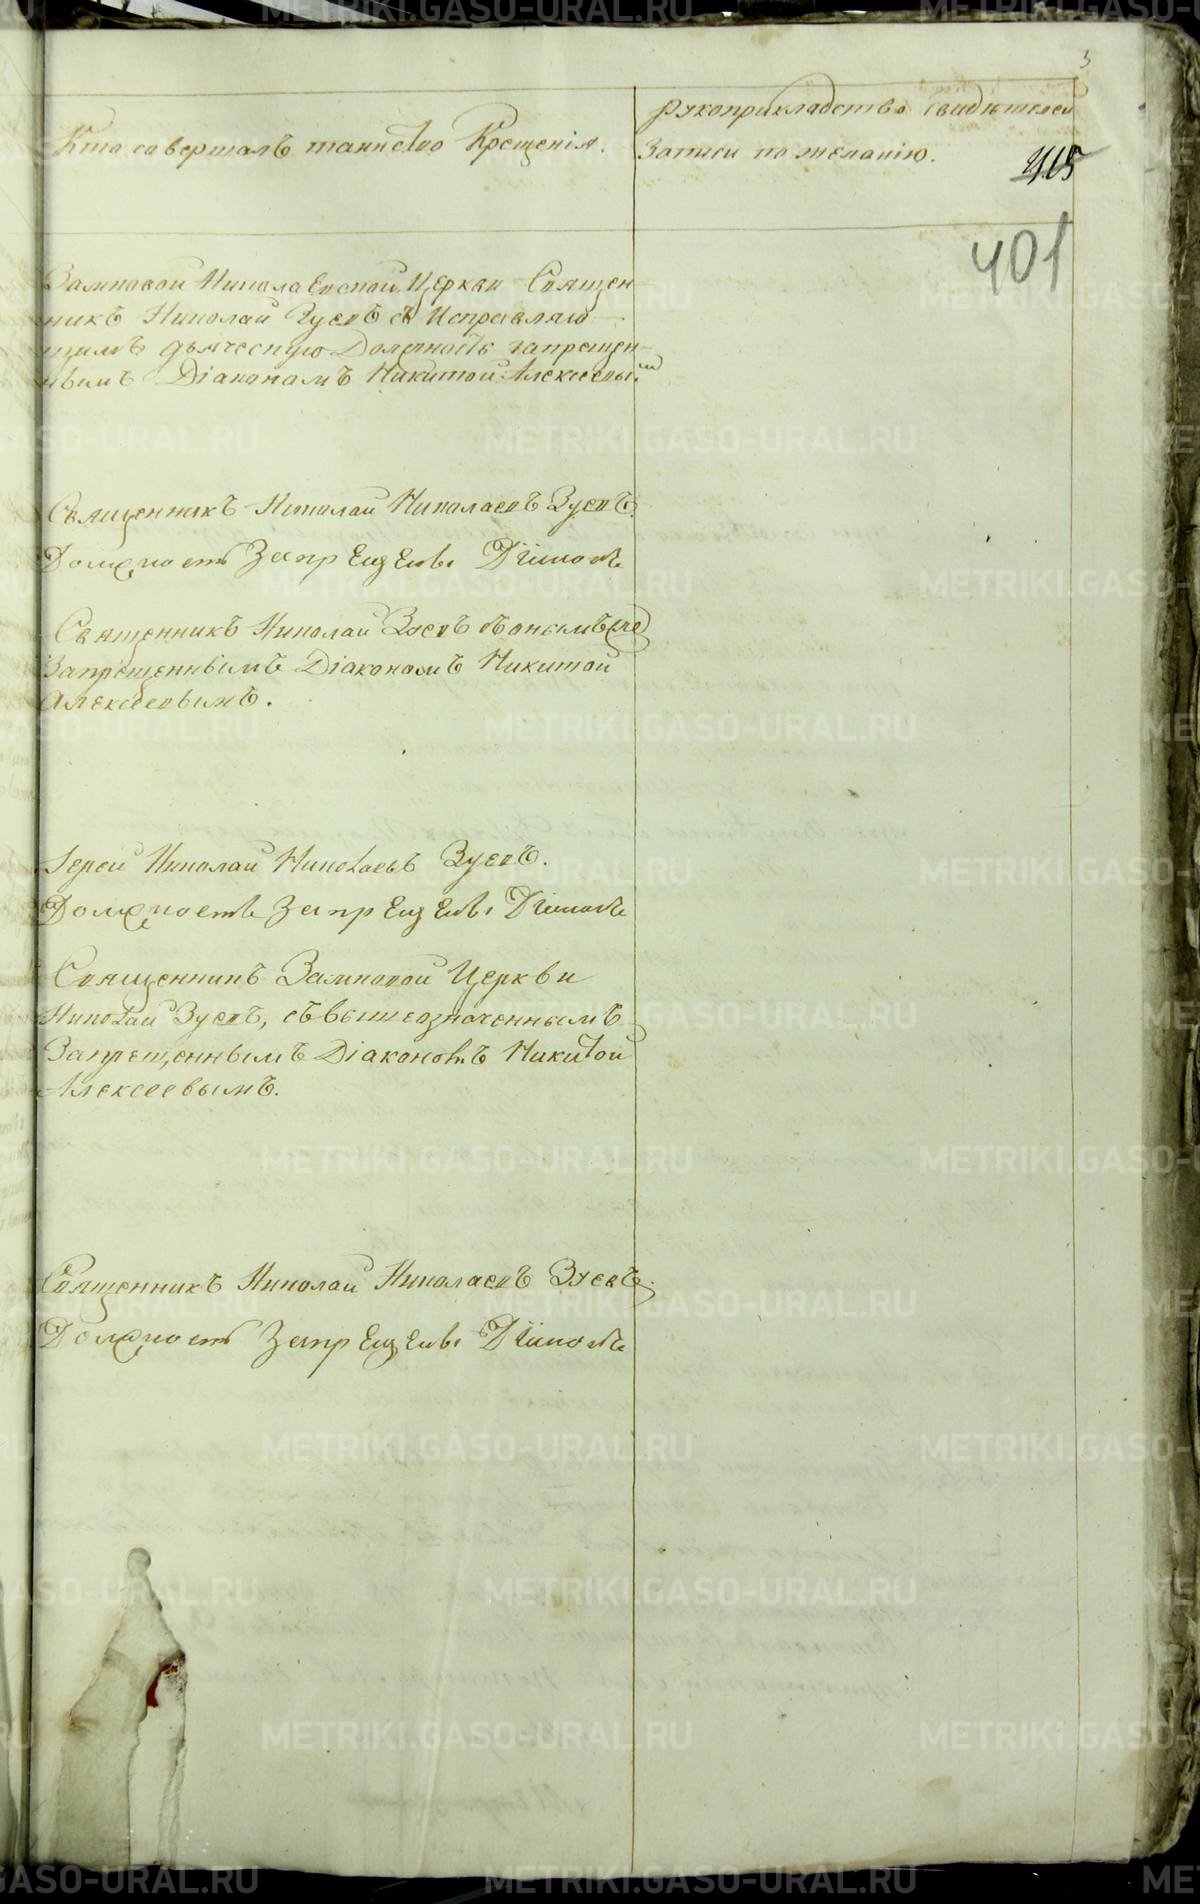 3
Кто совершалъ таинство Крещенія.
Рукоприкладство свидѣтелей
Записи по желанію.
415
401
Замковой Николаевской Церкви Священ
никъ Николай Зуевъ съ Исправляю
щимъ дьяческую Должность запрещен
нымъ Діакономъ Никитой Алексеевым
Священникъ Николай Николаевъ Зуевъ
Должность Запрещеный Діаконъ
Священникъ Николай Зуевъ съ онымъ же
Запрещеннымъ Діакономъ Никитой
Алексеевымъ.
Іерей Николай Николаевъ Зуевъ.
Должность Запрещеный Діаконъ
Священникъ Замковой Церкви
Николай Зуевъ, съ вышеозначеннымъ
Запрещеннымъ Діакономъ Никитой
Алексеевымъ.
Священникъ Николай Николаевъ Зуевъ.
Должность Запрещеный Діаконъ
METRIKI.GASO-URAL.RU